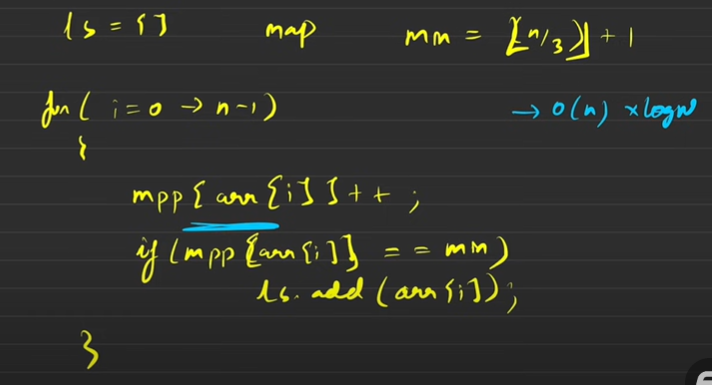 ls = [ ] map mm = ⌊n/3⌋ + 1
for( i=0 → n-1) → O(n) × logn
{
mpp[arr[i]]++;
if(mpp[arr[i]] == mm)
ls.add(arr[i]);
}